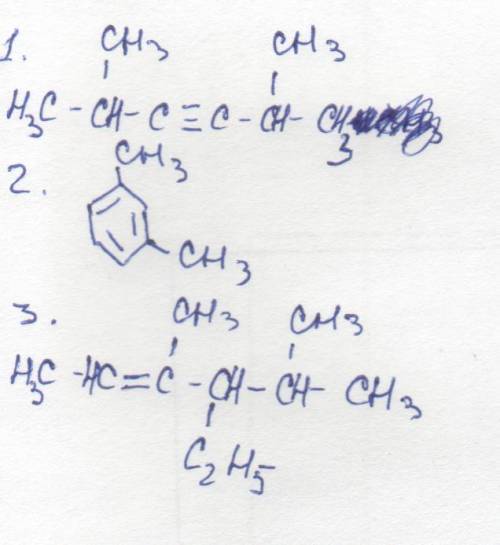 1. CH3 CH3
H3C - CH - C ≡ C - CH - CH3
2. CH3
CH3
3. CH3 CH3
H3C - HC = C - CH - CH - CH3
C2H5